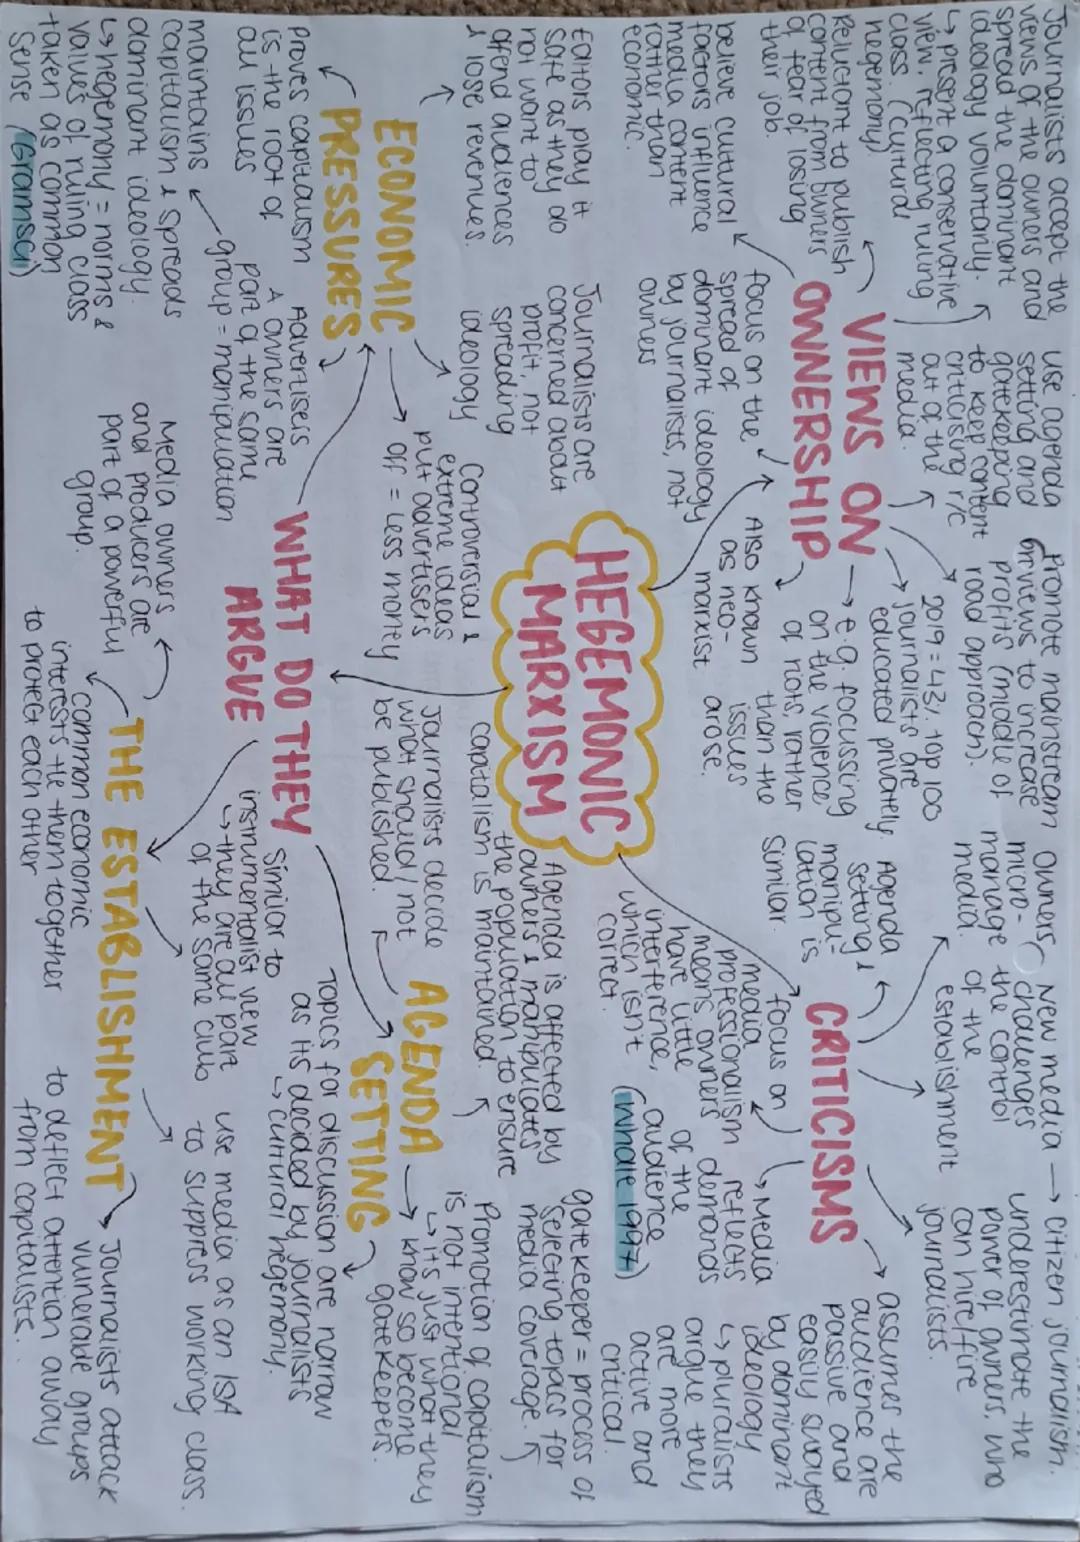 HEGEMONIC
MARXISM
VIEWS ON
OWNERSHIP
Journalists accept the
views of the owners and
spread the dominant
ideology voluntarily.
↳ present a conservative
view, reflecting ruling
class. (cultural
hegemony)
Reluctant to publish
content from owners
of fear of losing
their job.
believe cultural
factors influence
media content
rather than
economic.
use agenda
setting and
gatekeeping
to keep content
criticising r/c
out of the
media.
focus on the
spread of
dominant ideology
by journalists, not
owners
Also known
as neo-
marxist
Promote mainstream
views to increase
profits (middle of
road approach).
2019 = 43% top 100
journalists are
educated privately.
→ e.g. focussing
on the violence
of riots, rather
than the
issues
arose.
CRITICISMS
Owners
micro-
manage
media.
New media → citizen journalism.
challenges
the control
of the
establishment
underestimate the
power of owners, who
can hire/fire
journalists.
Agenda
setting &
manipu-
lation is
similar.
assumes the
audience are
passive and
easily swayed
by dominant
ideology
↳ pluralists
argue they
are more
active and
critical.
focus on
media
professionalism
means owners
have little
interference,
which isn't
correct
Media
reflects
demands
of the
audience
audience
(Whale 1997)
ECONOMIC
PRESSURES
Editors play it
safe as they do
not want to
offend audiences
& lose revenues.
Journalists are
concerned about
profit, not
spreading
ideology
Controversial &
extreme ideas
put advertisers
off = less money
proves capitalism
is the root of
all issues
Advertisers
& owners are
part of the same
group = manipulation
maintains
capitalism & spreads
dominant ideology.
↳ hegemony = norms &
values of ruling class
taken as common
sense (Gramsci)
WHAT DO THEY
ARGUE
AGENDA
SETTING
Agenda is affected by
owners & manipulates
the population to ensure
capitalism is maintained.
Journalists decide
what should/not
be published.
gatekeeper = process of
selecting topics for
media coverage.
Promotion of capitalism
is not intentional
↳ it's just what they
know so become
gatekeepers.
Topics for discussion are narrow
as its decided by journalists
↳ cultural hegemony.
THE ESTABLISHMENT
Media owners
and producers are
part of a powerful
group.
similar to
instrumentalist view
↳ they are all part
of the same club
common economic
interests tie them together
to protect each other
use media as an ISA
to suppress working class.
Journalists attack
vulnerable groups
to deflect attention away
from capitalists.